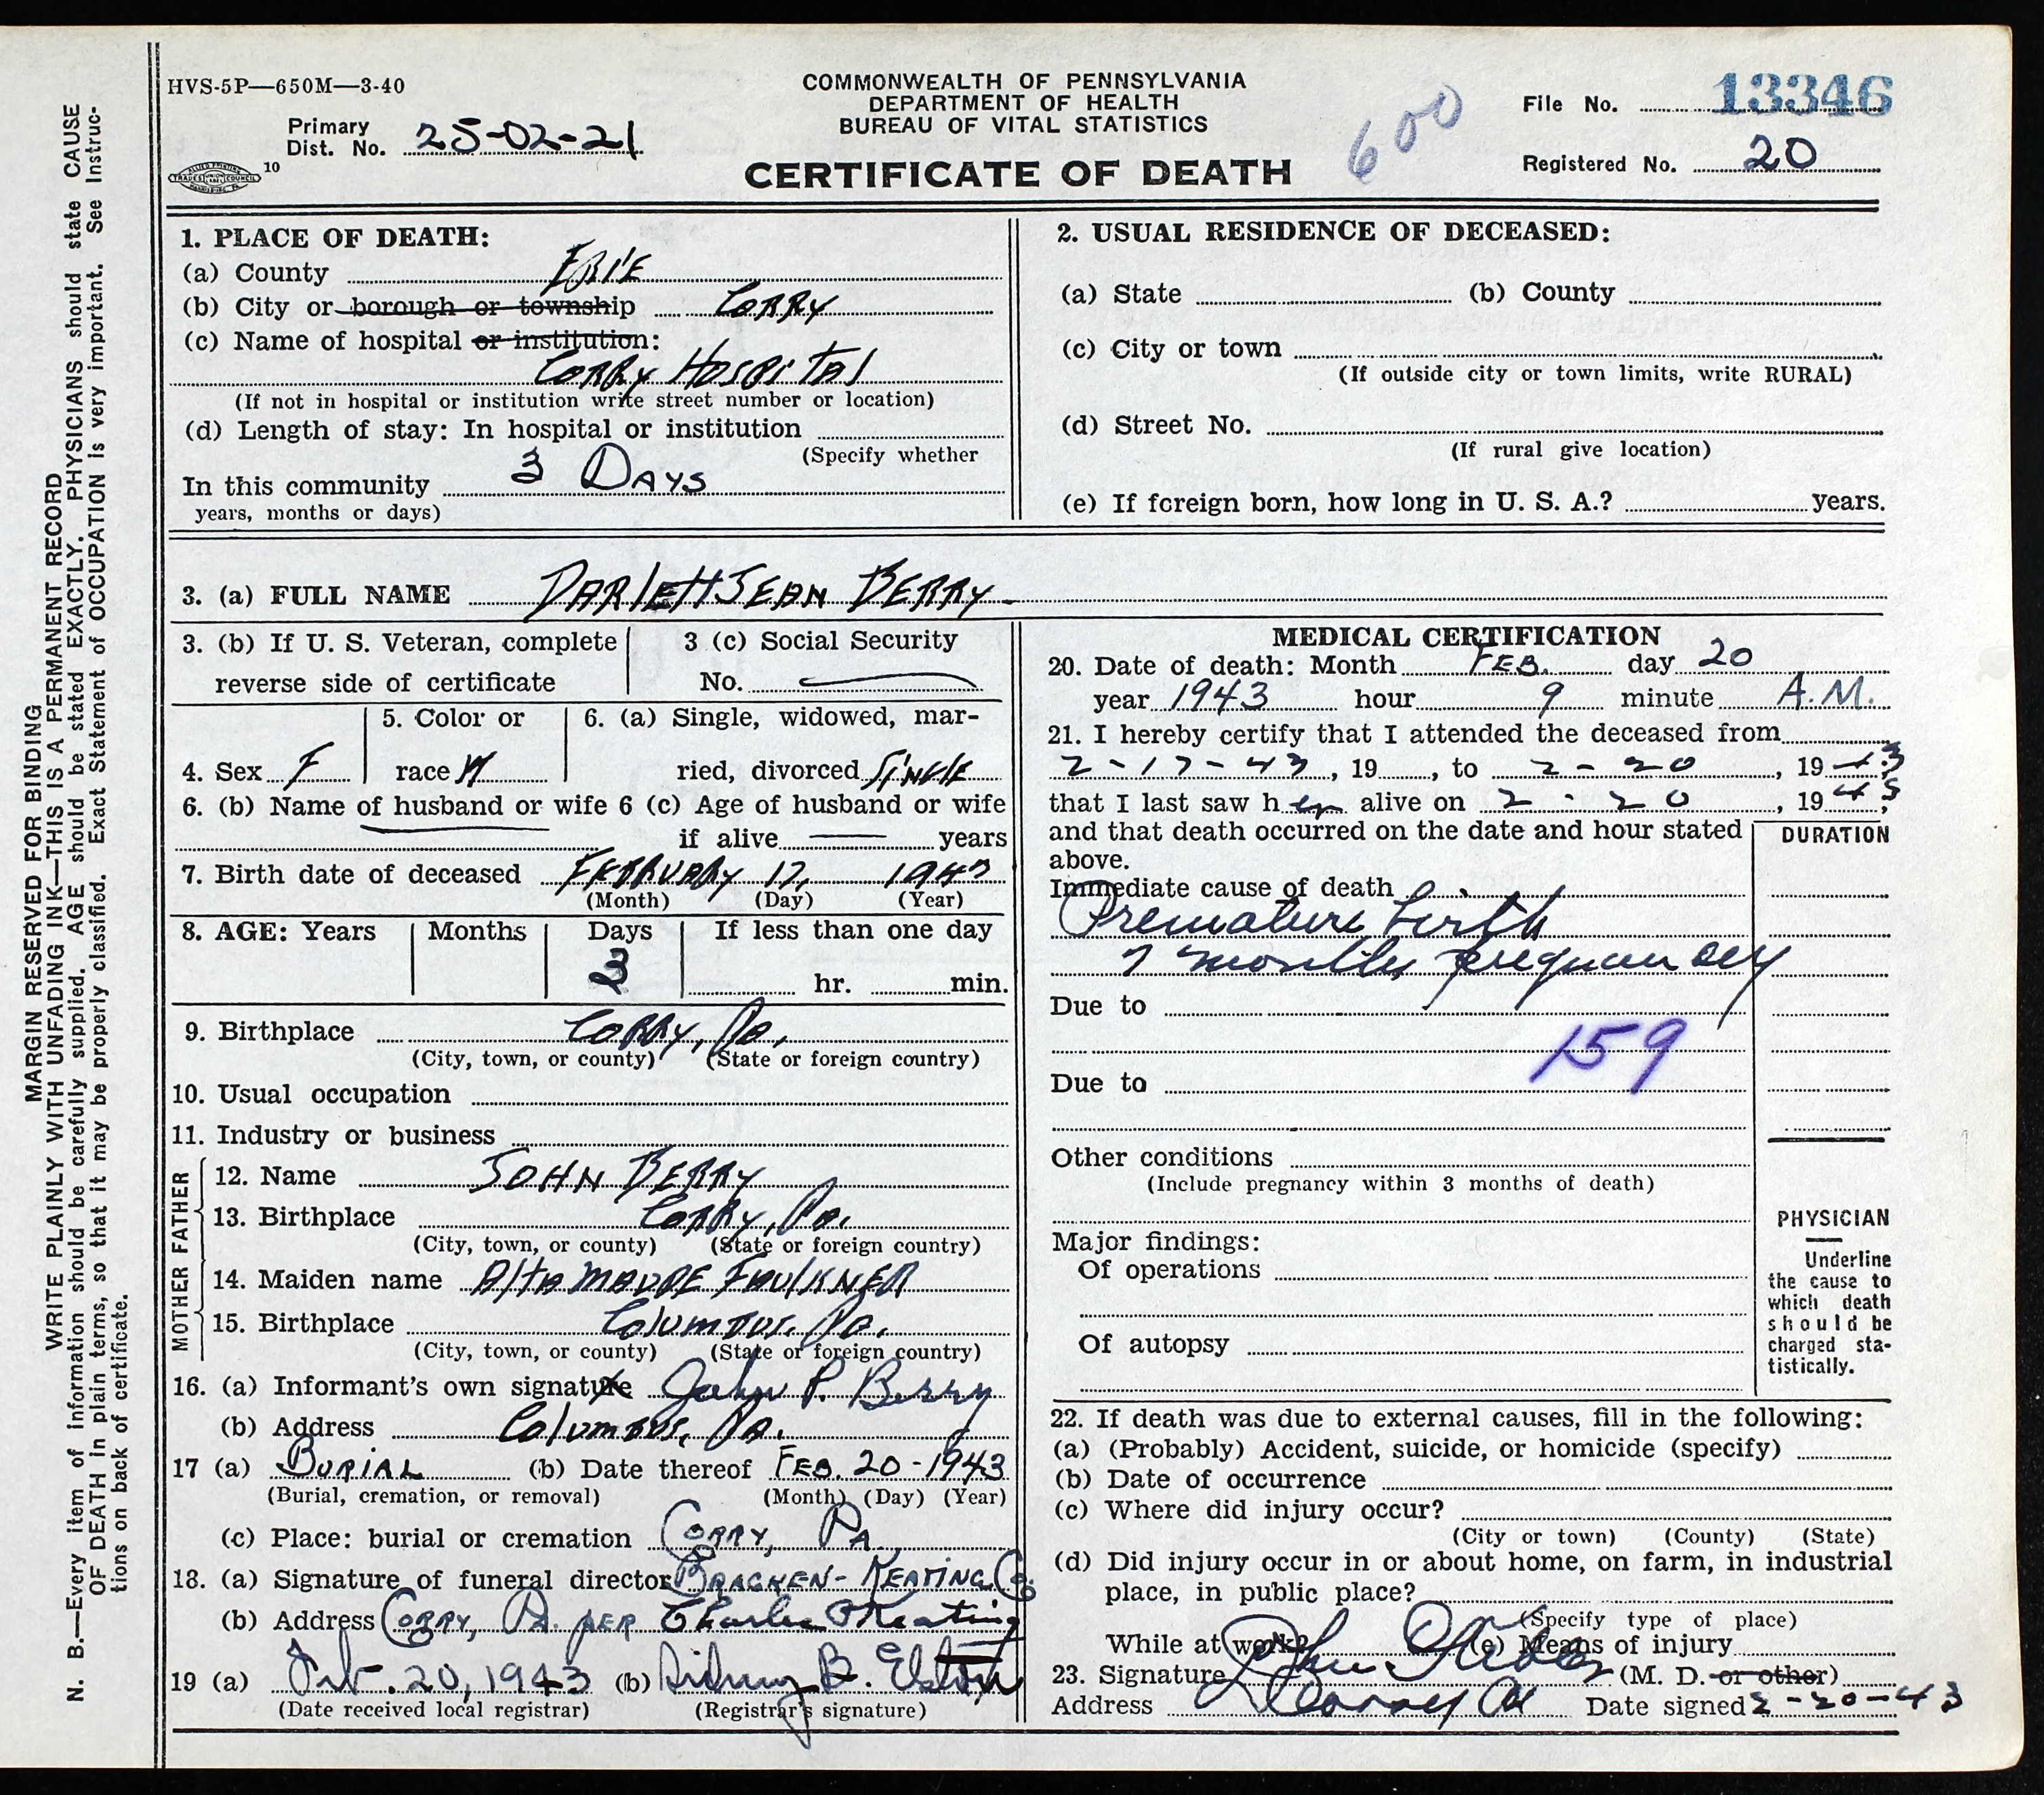 HVS-5P—650M—3-40
COMMONWEALTH OF PENNSYLVANIA
DEPARTMENT OF HEALTH
BUREAU OF VITAL STATISTICS
CERTIFICATE OF DEATH
600
File No. 13346
Registered No. 20
Primary
Dist. No. 25-02-21
10
1. PLACE OF DEATH:
(a) County ERIE
(b) City or borough or township CORRY
(c) Name of hospital or institution:
CORRY HOSPITAL
(If not in hospital or institution write street number or location)
(d) Length of stay: In hospital or institution
(Specify whether
In this community 3 DAYS
years, months or days)
2. USUAL RESIDENCE OF DECEASED:
(a) State (b) County
(c) City or town
(If outside city or town limits, write RURAL)
(d) Street No.
(If rural give location)
(e) If foreign born, how long in U. S. A.? years.
3. (a) FULL NAME DARlETT JEAN BERRY
3. (b) If U. S. Veteran, complete
reverse side of certificate
3 (c) Social Security
No.
4. Sex F
5. Color or
race W
6. (a) Single, widowed, mar-
ried, divorced SINGLE
6. (b) Name of husband or wife 6 (c) Age of husband or wife
if alive years
7. Birth date of deceased FEBRUARY 17, 1943
(Month) (Day) (Year)
8. AGE: Years Months Days If less than one day
3 hr. min.
9. Birthplace CORRY, PA.
(City, town, or county) (State or foreign country)
10. Usual occupation
11. Industry or business
FATHER
12. Name JOHN BERRY
13. Birthplace CORRY, PA.
(City, town, or county) (State or foreign country)
MOTHER
14. Maiden name AlTA MAUDE FAULKNER
15. Birthplace COLUMBUS, PA.
(City, town, or county) (State or foreign country)
16. (a) Informant's own signature John P. Berry
(b) Address COLUMBUS, PA.
17 (a) BURIAL (b) Date thereof FEB. 20-1943
(Burial, cremation, or removal) (Month) (Day) (Year)
(c) Place: burial or cremation CORRY, PA
18. (a) Signature of funeral director BRACKEN-KEATING CO.
(b) Address CORRY, PA. PER Charles Keating
19 (a) Feb. 20, 1943 (b) Sidney B. Elston
(Date received local registrar) (Registrar's signature)
MEDICAL CERTIFICATION
20. Date of death: Month FEB. day 20
year 1943 hour 9 minute A.M.
21. I hereby certify that I attended the deceased from
2-17-43, 19 , to 2-20, 19 43
that I last saw her alive on 2-20, 19 43,
and that death occurred on the date and hour stated
above.
DURATION
Immediate cause of death
Premature birth
7 months pregnancy
Due to
159
Due to
Other conditions
(Include pregnancy within 3 months of death)
Major findings:
Of operations
Of autopsy
PHYSICIAN
Underline
the cause to
which death
should be
charged sta-
tistically.
22. If death was due to external causes, fill in the following:
(a) (Probably) Accident, suicide, or homicide (specify)
(b) Date of occurrence
(c) Where did injury occur?
(City or town) (County) (State)
(d) Did injury occur in or about home, on farm, in industrial
place, in public place?
(Specify type of place)
While at work? (e) Means of injury
23. Signature (M. D. or other)
Address Corry Pa Date signed 2-20-43
MARGIN RESERVED FOR BINDING
WRITE PLAINLY WITH UNFADING INK—THIS IS A PERMANENT RECORD
N. B.—Every item of information should be carefully supplied. AGE should be stated EXACTLY. PHYSICIANS should state CAUSE
OF DEATH in plain terms, so that it may be properly classified. Exact Statement of OCCUPATION is very important. See Instruc-
tions on back of certificate.